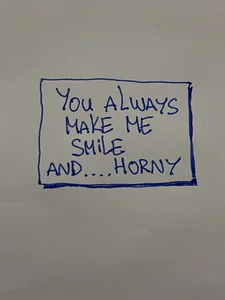 YOU ALWAYS
MAKE ME
SMILE
AND....HORNY